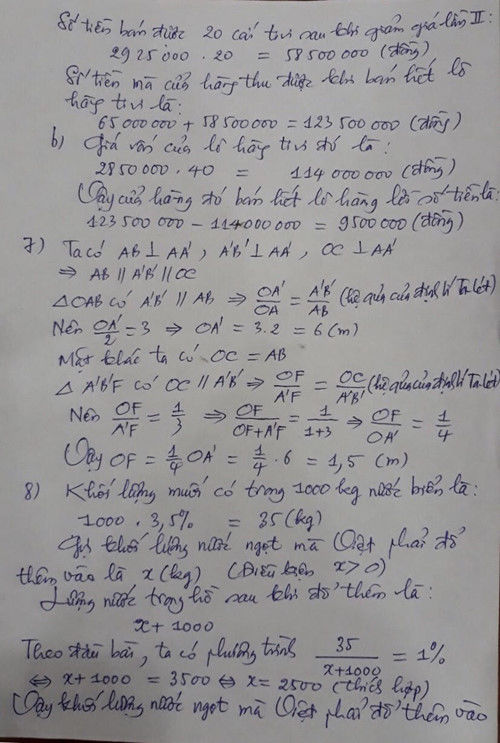 Số tiền bán được 20 cái tivi sau khi giảm giá lần II:
2925000 . 20 = 58500000 (đồng)
Số tiền mà cửa hàng thu được khi bán hết lô
hàng tivi là:
65000000 + 58500000 = 123500000 (đồng)
b) Giá vốn của lô hàng tivi đó là:
2850000 . 40 = 114000000 (đồng)
Vậy cửa hàng đó bán hết lô hàng lời số tiền là:
123500000 - 114000000 = 9500000 (đồng)
7) Ta có AB ⊥ AA', A'B' ⊥ AA', OC ⊥ AA'
⇒ AB // A'B' // OC
△ OAB có A'B' // AB ⇒ OA'/OA = A'B'/AB (hệ quả của định lí Ta lét)
Nên OA'/2 = 3 ⇒ OA' = 3.2 = 6 (m)
Mặt khác ta có OC = AB
△ A'B'F có OC // A'B' ⇒ OF/A'F = OC/A'B' (hệ quả của định lí Ta lét)
Nên OF/A'F = 1/3 ⇒ OF/OF+A'F = 1/1+3 ⇒ OF/OA' = 1/4
Vậy OF = 1/4 OA' = 1/4 . 6 = 1,5 (m)
8) Khối lượng muối có trong 1000 kg nước biển là:
1000 . 3,5% = 35 (kg)
Gọi khối lượng nước ngọt mà Việt phải đổ
thêm vào là x (kg) (Điều kiện x > 0)
Lượng nước trong hồ sau khi đổ thêm là:
x + 1000
Theo đầu bài, ta có phương trình 35/x+1000 = 1%
⇔ x + 1000 = 3500 ⇔ x = 2500 (thích hợp)
Vậy khối lượng nước ngọt mà Việt phải đổ thêm vào